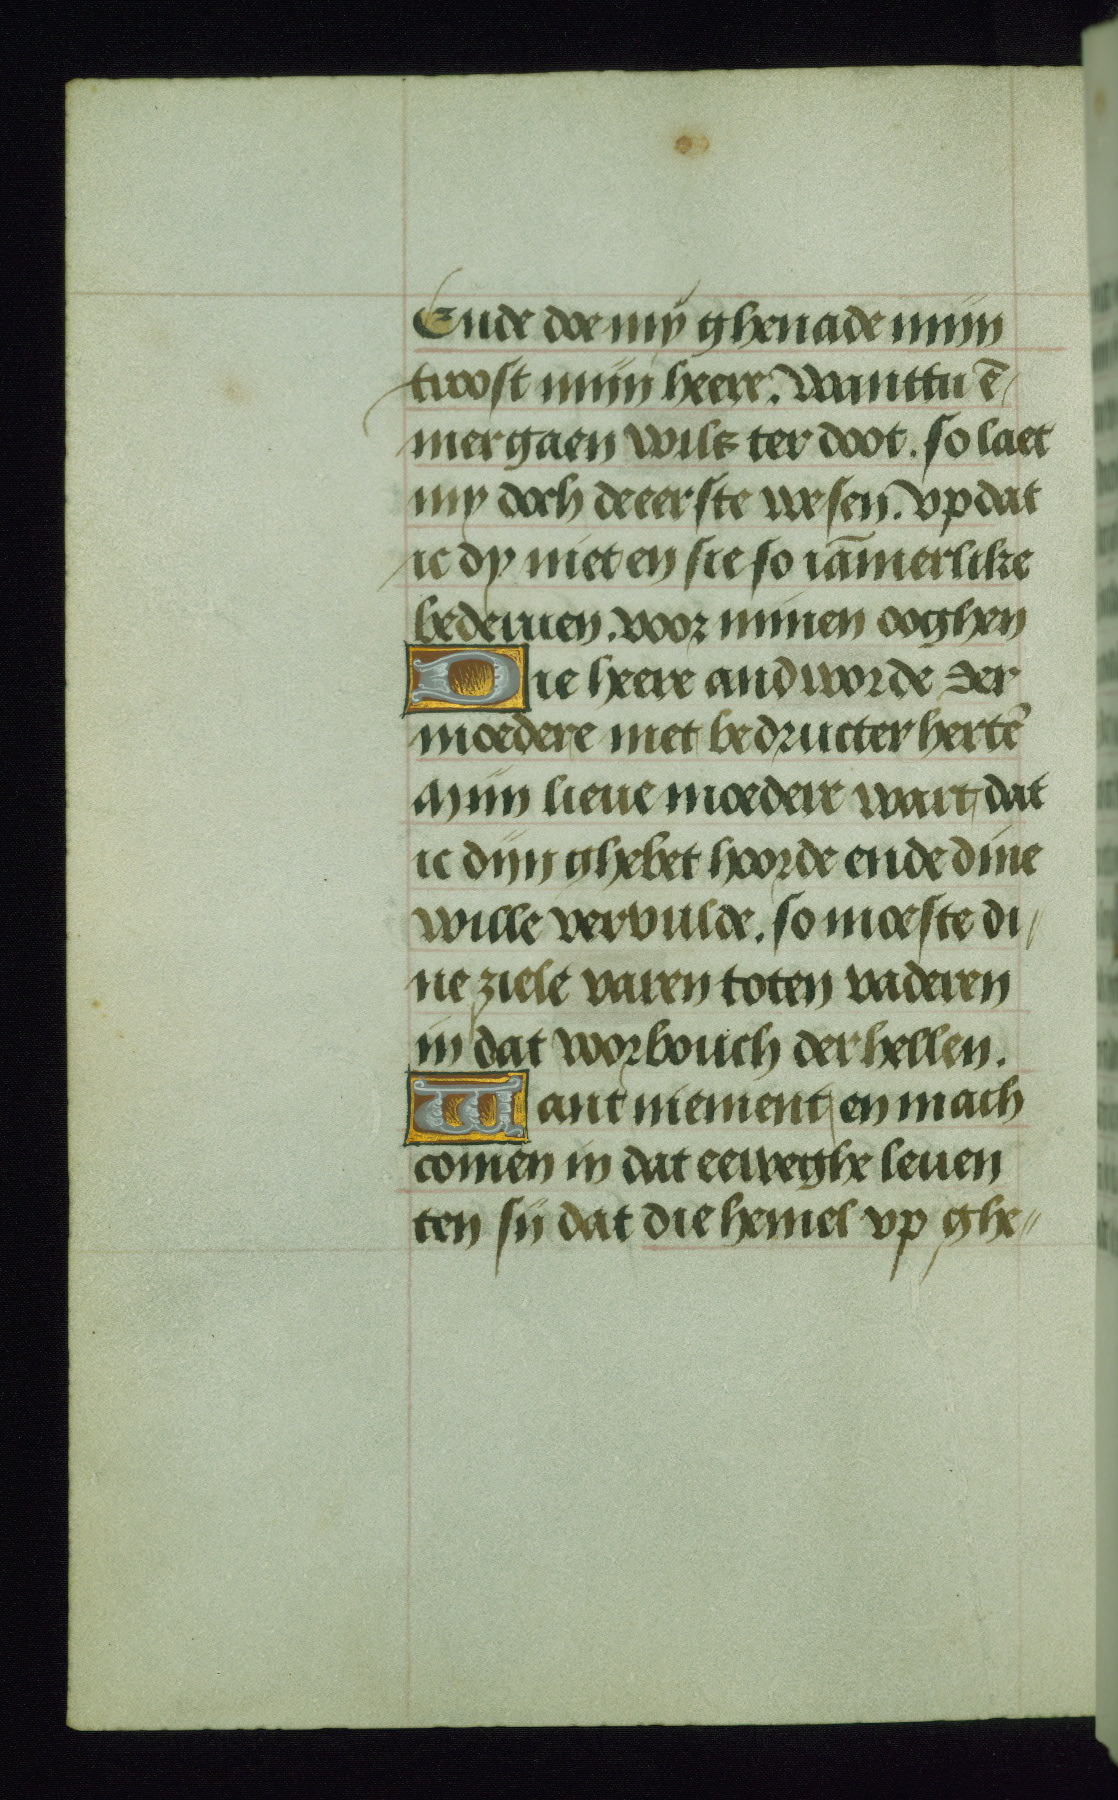 Ende doe my ghenade mijn
troost mijn heere. Wanttu ē
mer gaen wilt ter doot. so laet
my doch de eerste wesen. vp dat
ic dy niet en sie so iām̄erlike
bederuen. voor minen ooghen
Die heere andworde der
moedere met bedructer hertē
Mijn lieue moedere wart dat
ic dijn ghebet hoorde ende dine
wille vervulde. so moeste di/
ne ziele varen toten vaderen
in dat vorbouch der hellen.
Want niement en mach
comen in dat eeweghe leuen
ten sij dat die hemel vp ghe//